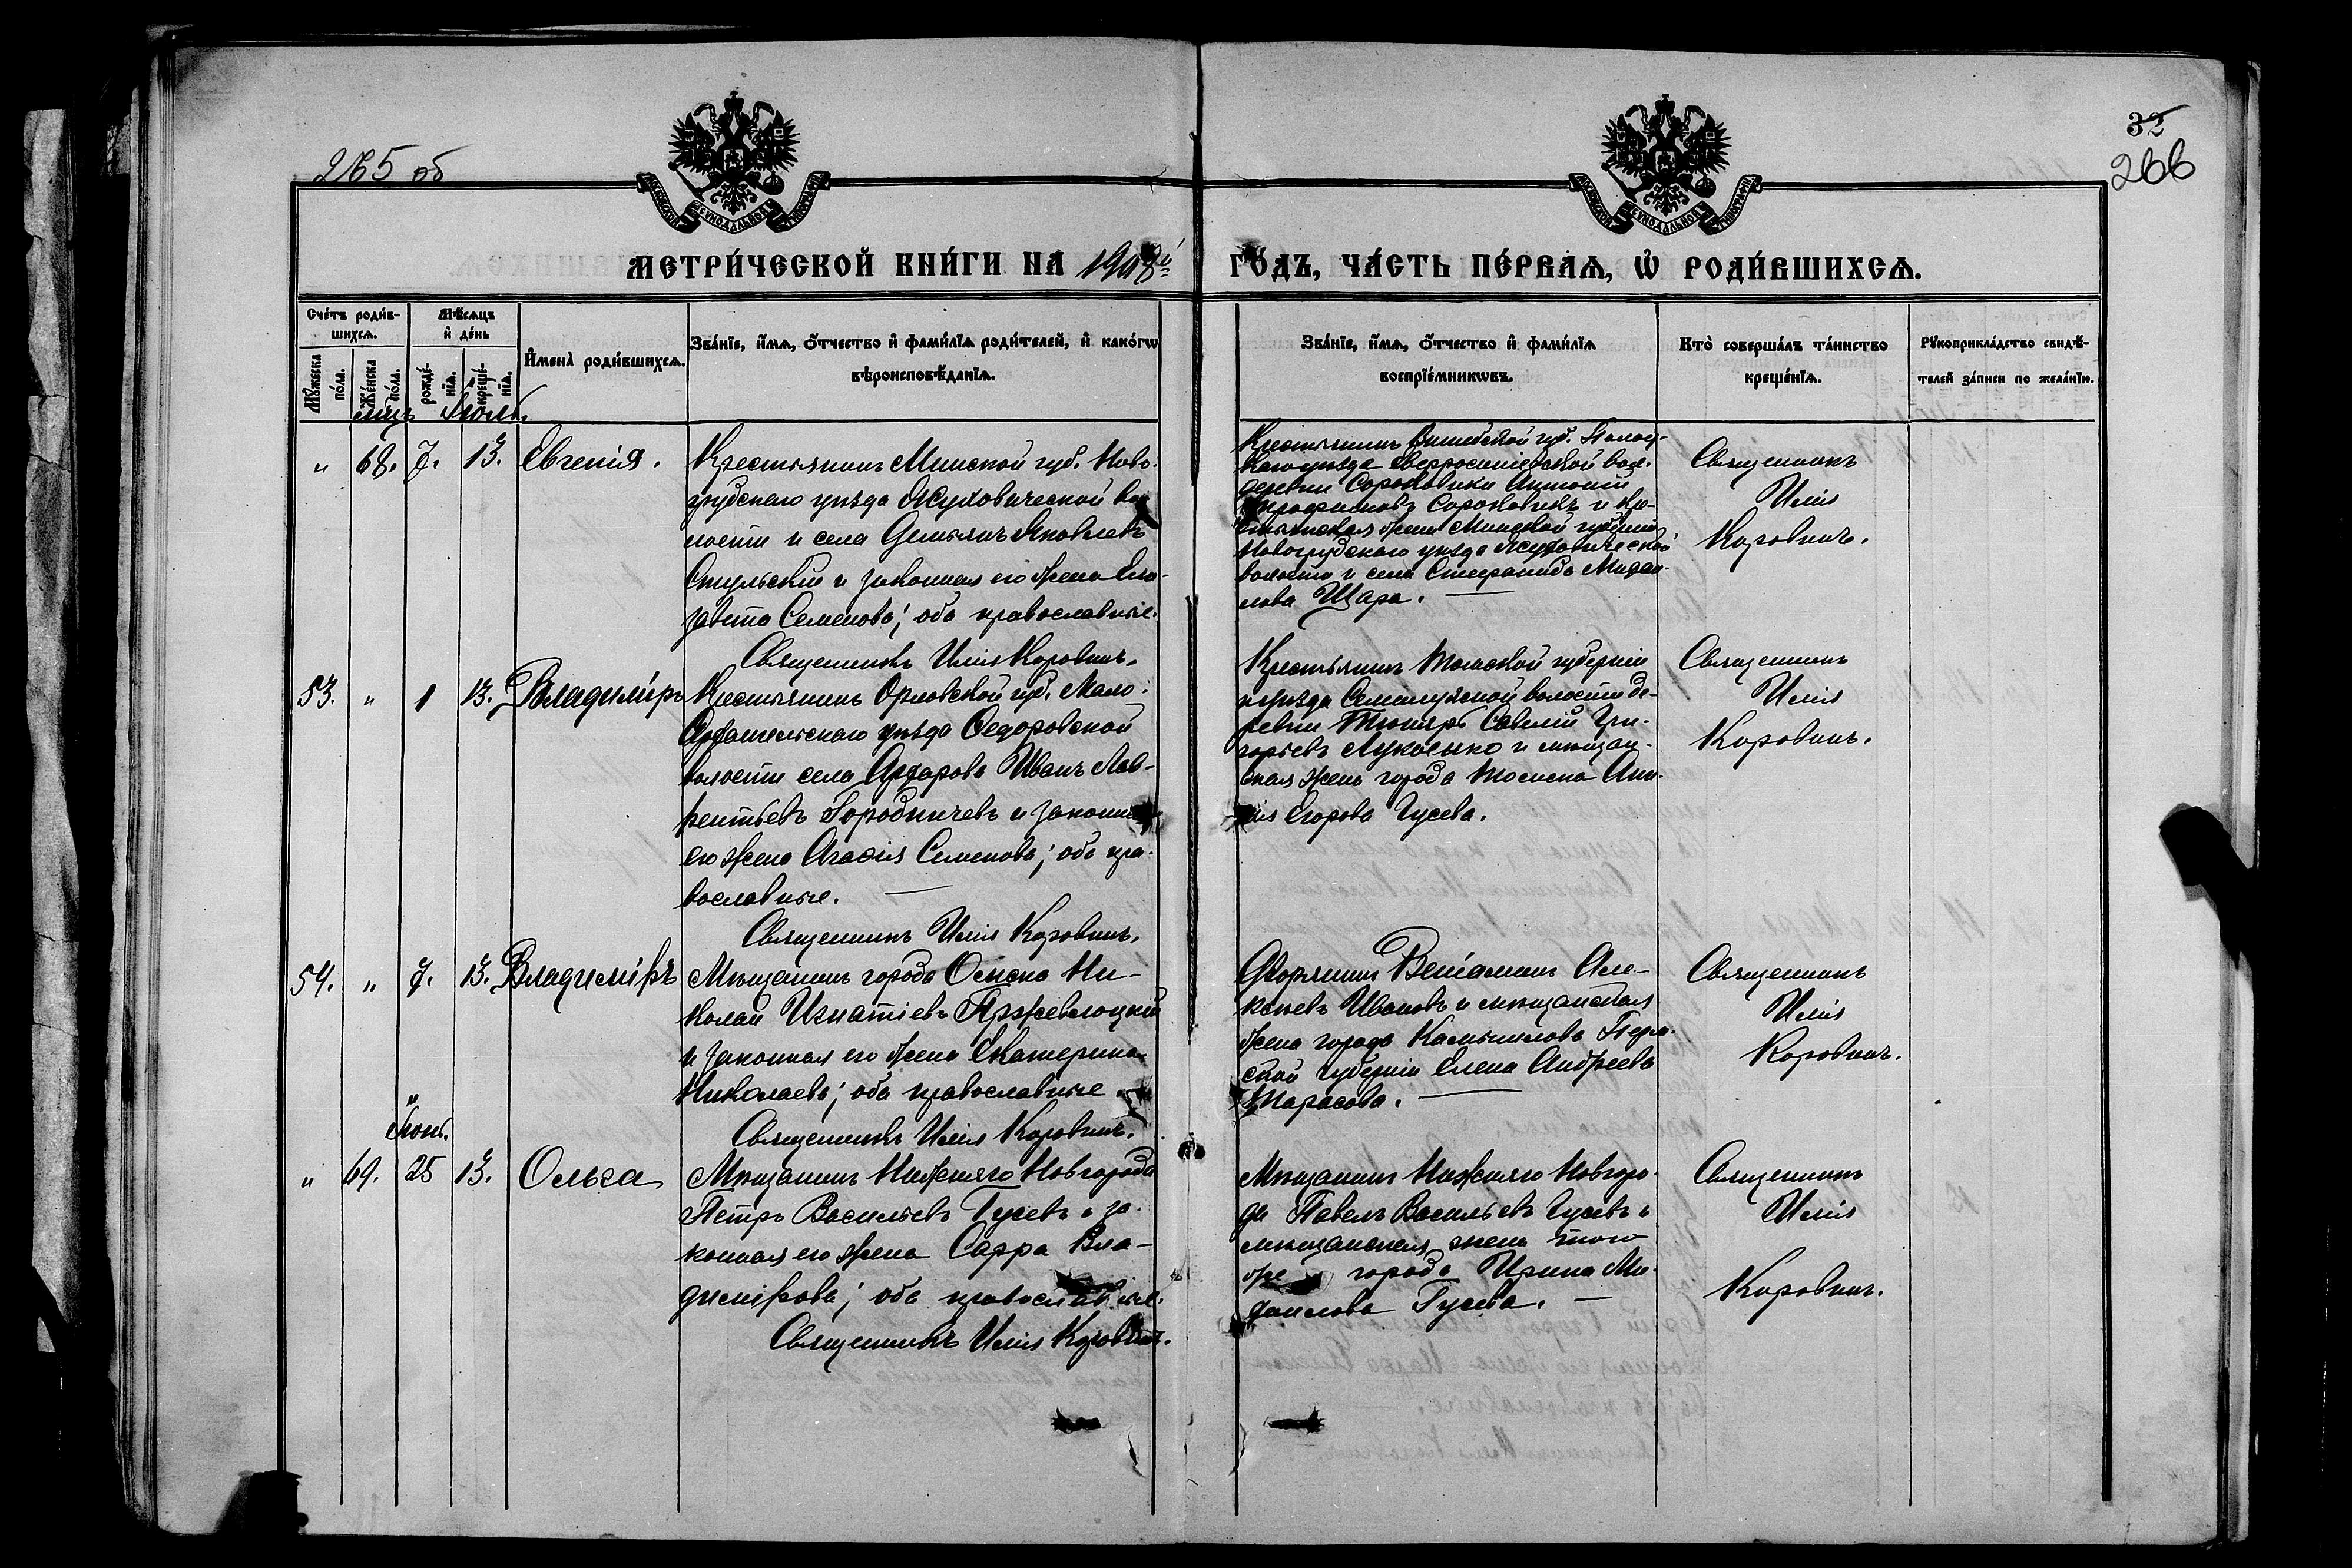 265 об
32
266
МОСКОВСКОЙ СѴНОДАЛЬНОЙ ТИПОГРАФІИ
МОСКОВСКОЙ СѴНОДАЛЬНОЙ ТИПОГРАФІИ
МЕТРИ́ЧЕСКОЙ КНИ́ГИ НА 1908й ГО́ДЪ, ЧА́СТЬ ПЕ́РВАѦ, Ѡ҆ РОДИ́ВШИХСѦ.
Сче́тъ роди́в-
шихсѧ.
Мꙋ́жеска по́ла.
Же́нска по́ла.
Мѣ́сѧцъ
и҆ де́нь
рожде́-
нїѧ.
креще́-
нїѧ.
И҆мена̀ роди́вшихсѧ.
Зва́нїе, и҆́мѧ, ѻ҆́тчество и҆ фами́лїѧ роди́телей, и҆ како́гѡ
вѣроисповѣ́данїѧ.
Зва́нїе, и҆́мѧ, ѻ҆́тчество и҆ фами́лїѧ
воспрїе́мникѡвъ.
Кто̀ соверша́лъ та́инство
креще́нїѧ.
Рꙋкоприкла́дство свидѣ́-
телей за́писи по жела́нїю.
мцъ Іюль.
" 68. 7. 13. Евгенія.
Крестьянинъ Минской губ. Ново-
грудскаго уѣзда Жуховической во-
лости и села Демьянъ Яковлевъ
и законная его жена Ели-
завета Семенова; оба православные.
Священникъ Илія Коровинъ.
Крестьянинъ Витебской губ. Полоц-
каго уѣзда волс.
деревни Сороковики Антоній
Сороковикъ и кре-
стьянская жена Минской губерніи
Новогрудскаго уѣзда Жуховической
волости и села Стефанида Михаи-
лова Щара.
Священникъ
Илія
Коровинъ.
53. " 1 13. Владиміръ
Крестьянинъ Орловской губ. Мало-
Архангельскаго уѣзда Ѳедоровской
волости села Архарова Иванъ Лав-
рентьевъ Городничевъ и законная
его жена Агафія Семенова; оба пра-
вославные.
Священникъ Илія Коровинъ.
Крестьянинъ Томской губерніи
и уѣзда Семилужской волости де-
ревни Савелій Гри-
горьевъ и мѣщан-
ская жена города Томска
Егорова Гусева.
Священникъ
Илія
Коровинъ.
54. " 7. 13. Владиміръ
Мѣщанинъ города Омска Ни-
колай Игнатіевъ Пржевлоцкій
и законная его жена Екатерина
Николаева; оба православные.
Священникъ Илія Коровинъ.
Дворянинъ Веніаминъ Але-
ксѣевъ Ивановъ и мѣщанская
жена города Камышлова Перм-
ской губерніи Елена Андреева
Тарасова.
Священникъ
Илія
Коровинъ.
Іюнь.
" 69. 25 13. Ольга
Мѣщанинъ Нижняго Новгорода
Петръ Васильевъ Гусевъ и за-
конная его жена Сарра Вла-
димірова; оба православные.
Священникъ Илія Коровинъ.
Мѣщанинъ Нижняго Новгоро-
да Павелъ Васильевъ Гусевъ и
мѣщанская жена того
же города Ирина Ми-
хаилова Гусева.
Священникъ
Илія
Коровинъ.